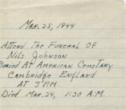 Mar. 25, 1944
Attend The Funeral Of
Nils Johnson
Buried At American Cemetary
Cambridge England
At 3 P.M.
Died Mar. 24, 1:30 A.M.